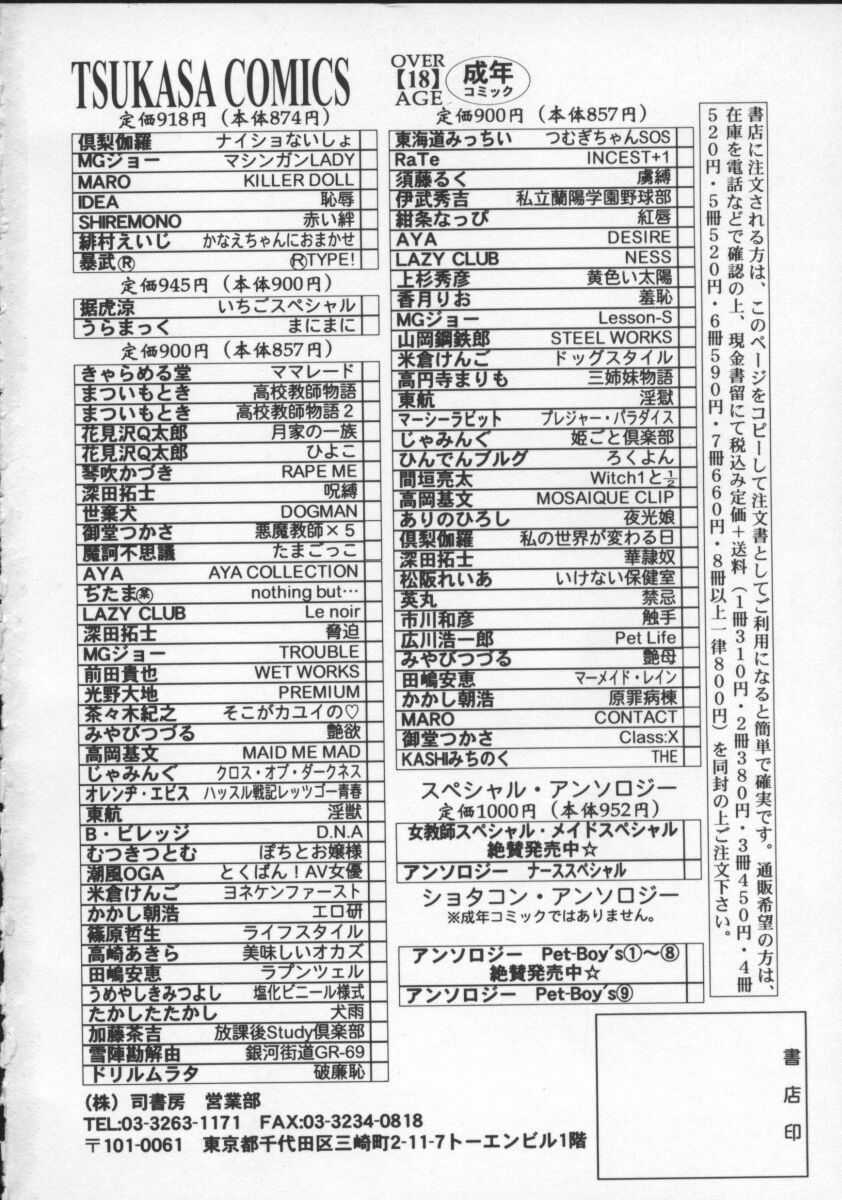 TSUKASA COMICS
OVER
【18】
AGE
成年
コミック
定価918円（本体874円）
倶梨伽羅 ナイショないしょ
MGジョー マシンガンLADY
MARO KILLER DOLL
IDEA 恥辱
SHIREMONO 赤い絆
緋村えいじ かなえちゃんにおまかせ
暴武Ⓡ ⓇTYPE!
定価945円（本体900円）
据虎涼 いちごスペシャル
うらまっく まにまに
定価900円（本体857円）
きゃらめる堂 ママレード
まついもとき 高校教師物語
まついもとき 高校教師物語2
花見沢Q太郎 月家の一族
花見沢Q太郎 ひよこ
琴吹かづき RAPE ME
深田拓士 呪縛
世棄犬 DOGMAN
御堂つかさ 悪魔教師×5
魔訶不思議 たまごっこ
AYA AYA COLLECTION
ぢたま㊑ nothing but…
LAZY CLUB Le noir
深田拓士 脅迫
MGジョー TROUBLE
前田貴也 WET WORKS
光野大地 PREMIUM
茶々木紀之 そこがカユイの♡
みやびつづる 艶欲
高岡基文 MAID ME MAD
じゃみんぐ クロス・オブ・ダークネス
オレンヂ・エビス ハッスル戦記レッツゴー青春
東航 淫獣
B・ビレッジ D.N.A
むつきつとむ ぽちとお嬢様
潮風OGA とくばん！AV女優
米倉けんご ヨネケンファースト
かかし朝浩 エロ研
篠原哲生 ライフスタイル
高崎あきら 美味しいオカズ
田嶋安恵 ラプンツェル
うめやしきみつよし 塩化ビニール様式
たかしたたかし 犬雨
加藤茶吉 放課後Study倶楽部
雪陣勘解由 銀河街道GR-69
ドリルムラタ 破廉恥
定価900円（本体857円）
東海道みっちい つむぎちゃんSOS
RaTe INCEST+1
須藤るく 虜縛
伊武秀吉 私立蘭陽学園野球部
紺条なっぴ 紅唇
AYA DESIRE
LAZY CLUB NESS
上杉秀彦 黄色い太陽
香月りお 羞恥
MGジョー Lesson-S
山岡鋼鉄郎 STEEL WORKS
米倉けんご ドッグスタイル
高円寺まりも 三姉妹物語
東航 淫獄
マーシーラビット プレジャー・パラダイス
じゃみんぐ 姫ごと倶楽部
ひんでんブルグ ろくよん
間垣亮太 Witch1と½
高岡基文 MOSAIQUE CLIP
ありのひろし 夜光娘
倶梨伽羅 私の世界が変わる日
深田拓士 華隷奴
松阪れいあ いけない保健室
英丸 禁忌
市川和彦 触手
広川浩一郎 Pet Life
みやびつづる 艶母
田嶋安恵 マーメイド・レイン
かかし朝浩 原罪病棟
MARO CONTACT
御堂つかさ Class:X
KASHIみちのく THE
スペシャル・アンソロジー
定価1000円（本体952円）
女教師スペシャル・メイドスペシャル
絶賛発売中☆
アンソロジー ナーススペシャル
ショタコン・アンソロジー
※成年コミックではありません。
アンソロジー Pet-Boy's①〜⑧
絶賛発売中☆
アンソロジー Pet-Boy's⑨
書店に注文される方は、このページをコピーして注文書としてご利用になると簡単で確実です。通販希望の方は、
在庫を電話などで確認の上、現金書留にて税込み定価＋送料（1冊310円・2冊380円・3冊450円・4冊
520円・5冊520円・6冊590円・7冊660円・8冊以上一律800円）を同封の上ご注文下さい。
書店印
（株）司書房 営業部
TEL:03-3263-1171 FAX:03-3234-0818
〒101-0061 東京都千代田区三崎町2-11-7トーエンビル1階